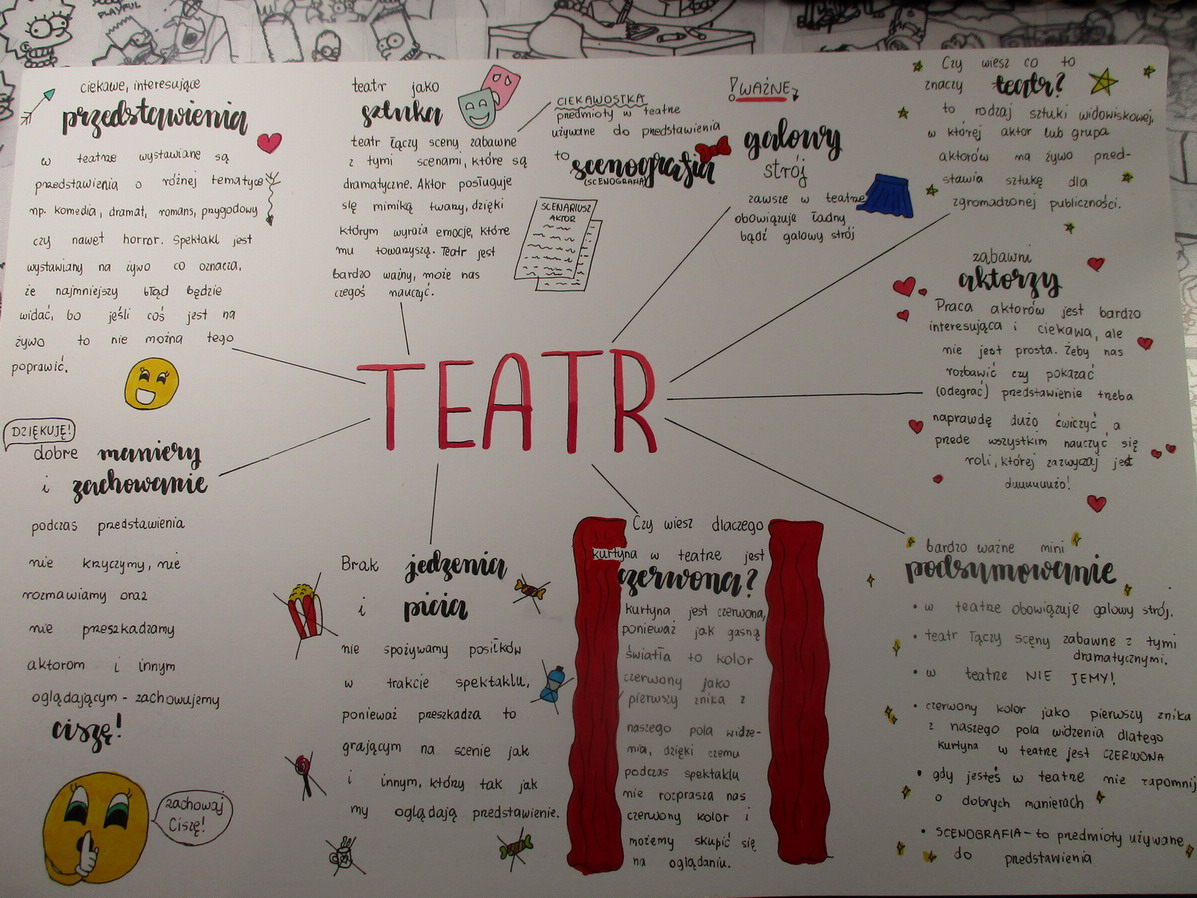 PLAYFUL
ciekawe, interesujące
przedstawienia
w teatrze wystawiane są
przedstawienia o różnej tematyce
np. komedia, dramat, romans, przygodowy
czy nawet horror. Spektakl jest
wystawiany na żywo co oznacza,
że najmniejszy błąd będzie
widać, bo jeśli coś jest na
żywo to nie można tego
poprawić.
teatr jako
sztuka
teatr łączy sceny zabawne
z tymi scenami, które są
dramatyczne. Aktor posługuje
się mimiką twarzy, dzięki
którym wyraża emocje, które
mu towarzyszą. Teatr jest
bardzo ważny, może nas
czegoś nauczyć.
CIEKAWOSTKA
przedmioty w teatrze
używane do przedstawienia
to scenografia
(SCENOGRAFIA)
SCENARIUSZ
AKTOR
!WAŻNE
galowy
strój
zawsze w teatrze
obowiązuje ładny
bądź galowy strój
Czy wiesz co to
znaczy teatr?
to rodzaj sztuki widowiskowej,
w której aktor lub grupa
aktorów na żywo przed-
stawia sztukę dla
zgromadzonej publiczności.
zabawni
aktorzy
Praca aktorów jest bardzo
interesująca i ciekawa, ale
nie jest prosta. Żeby nas
rozbawić czy pokazać
(odegrać) przedstawienie trzeba
naprawdę dużo ćwiczyć, a
przede wszystkim nauczyć się
roli, której zazwyczaj jest
duuuuuużo!
TEATR
DZIĘKUJĘ!
dobre maniery
i zachowanie
podczas przedstawienia
nie krzyczymy, nie
rozmawiamy oraz
nie przeszkadzamy
aktorom i innym
oglądającym - zachowujemy
ciszę!
zachowaj
Ciszę!
Brak jedzenia
i picia
nie spożywamy posiłków
w trakcie spektaklu,
ponieważ przeszkadza to
grającym na scenie jak
i innym, który tak jak
my oglądają przedstawienie.
Czy wiesz dlaczego
kurtyna w teatrze jest
czerwona?
kurtyna jest czerwona,
ponieważ jak gasną
światła to kolor
czerwony jako
pierwszy znika z
naszego pola widze-
nia, dzięki czemu
podczas spektaklu
nie rozprasza nas
czerwony kolor i
możemy skupić się
na oglądaniu.
bardzo ważne mini
podsumowanie
• w teatrze obowiązuje galowy strój.
• teatr łączy sceny zabawne z tymi
dramatycznymi.
• w teatrze NIE JEMY!
• czerwony kolor jako pierwszy znika
z naszego pola widzenia dlatego
kurtyna w teatrze jest CZERWONA
• gdy jesteś w teatrze nie zapomnij
o dobrych manierach
• SCENOGRAFIA - to przedmioty używane
do przedstawienia